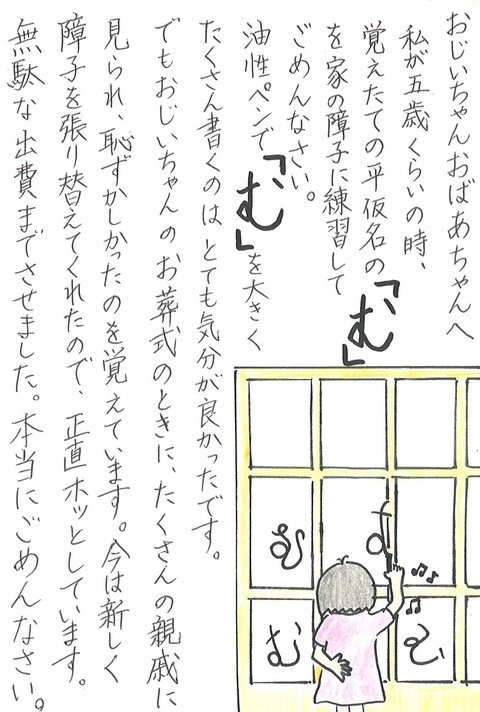 おじいちゃんおばあちゃんへ
私が五歳くらいの時、
覚えたての平仮名の「む」
を家の障子に練習して
ごめんなさい。
油性ペンで「む」を大きく
たくさん書くのはとても気分が良かったです。
でもおじいちゃんのお葬式のときに、たくさんの親戚に
見られ、恥ずかしかったのを覚えています。今は新しく
障子を張り替えてくれたので、正直ホッとしています。
無駄な出費までさせました。本当にごめんなさい。
む
む
む
む